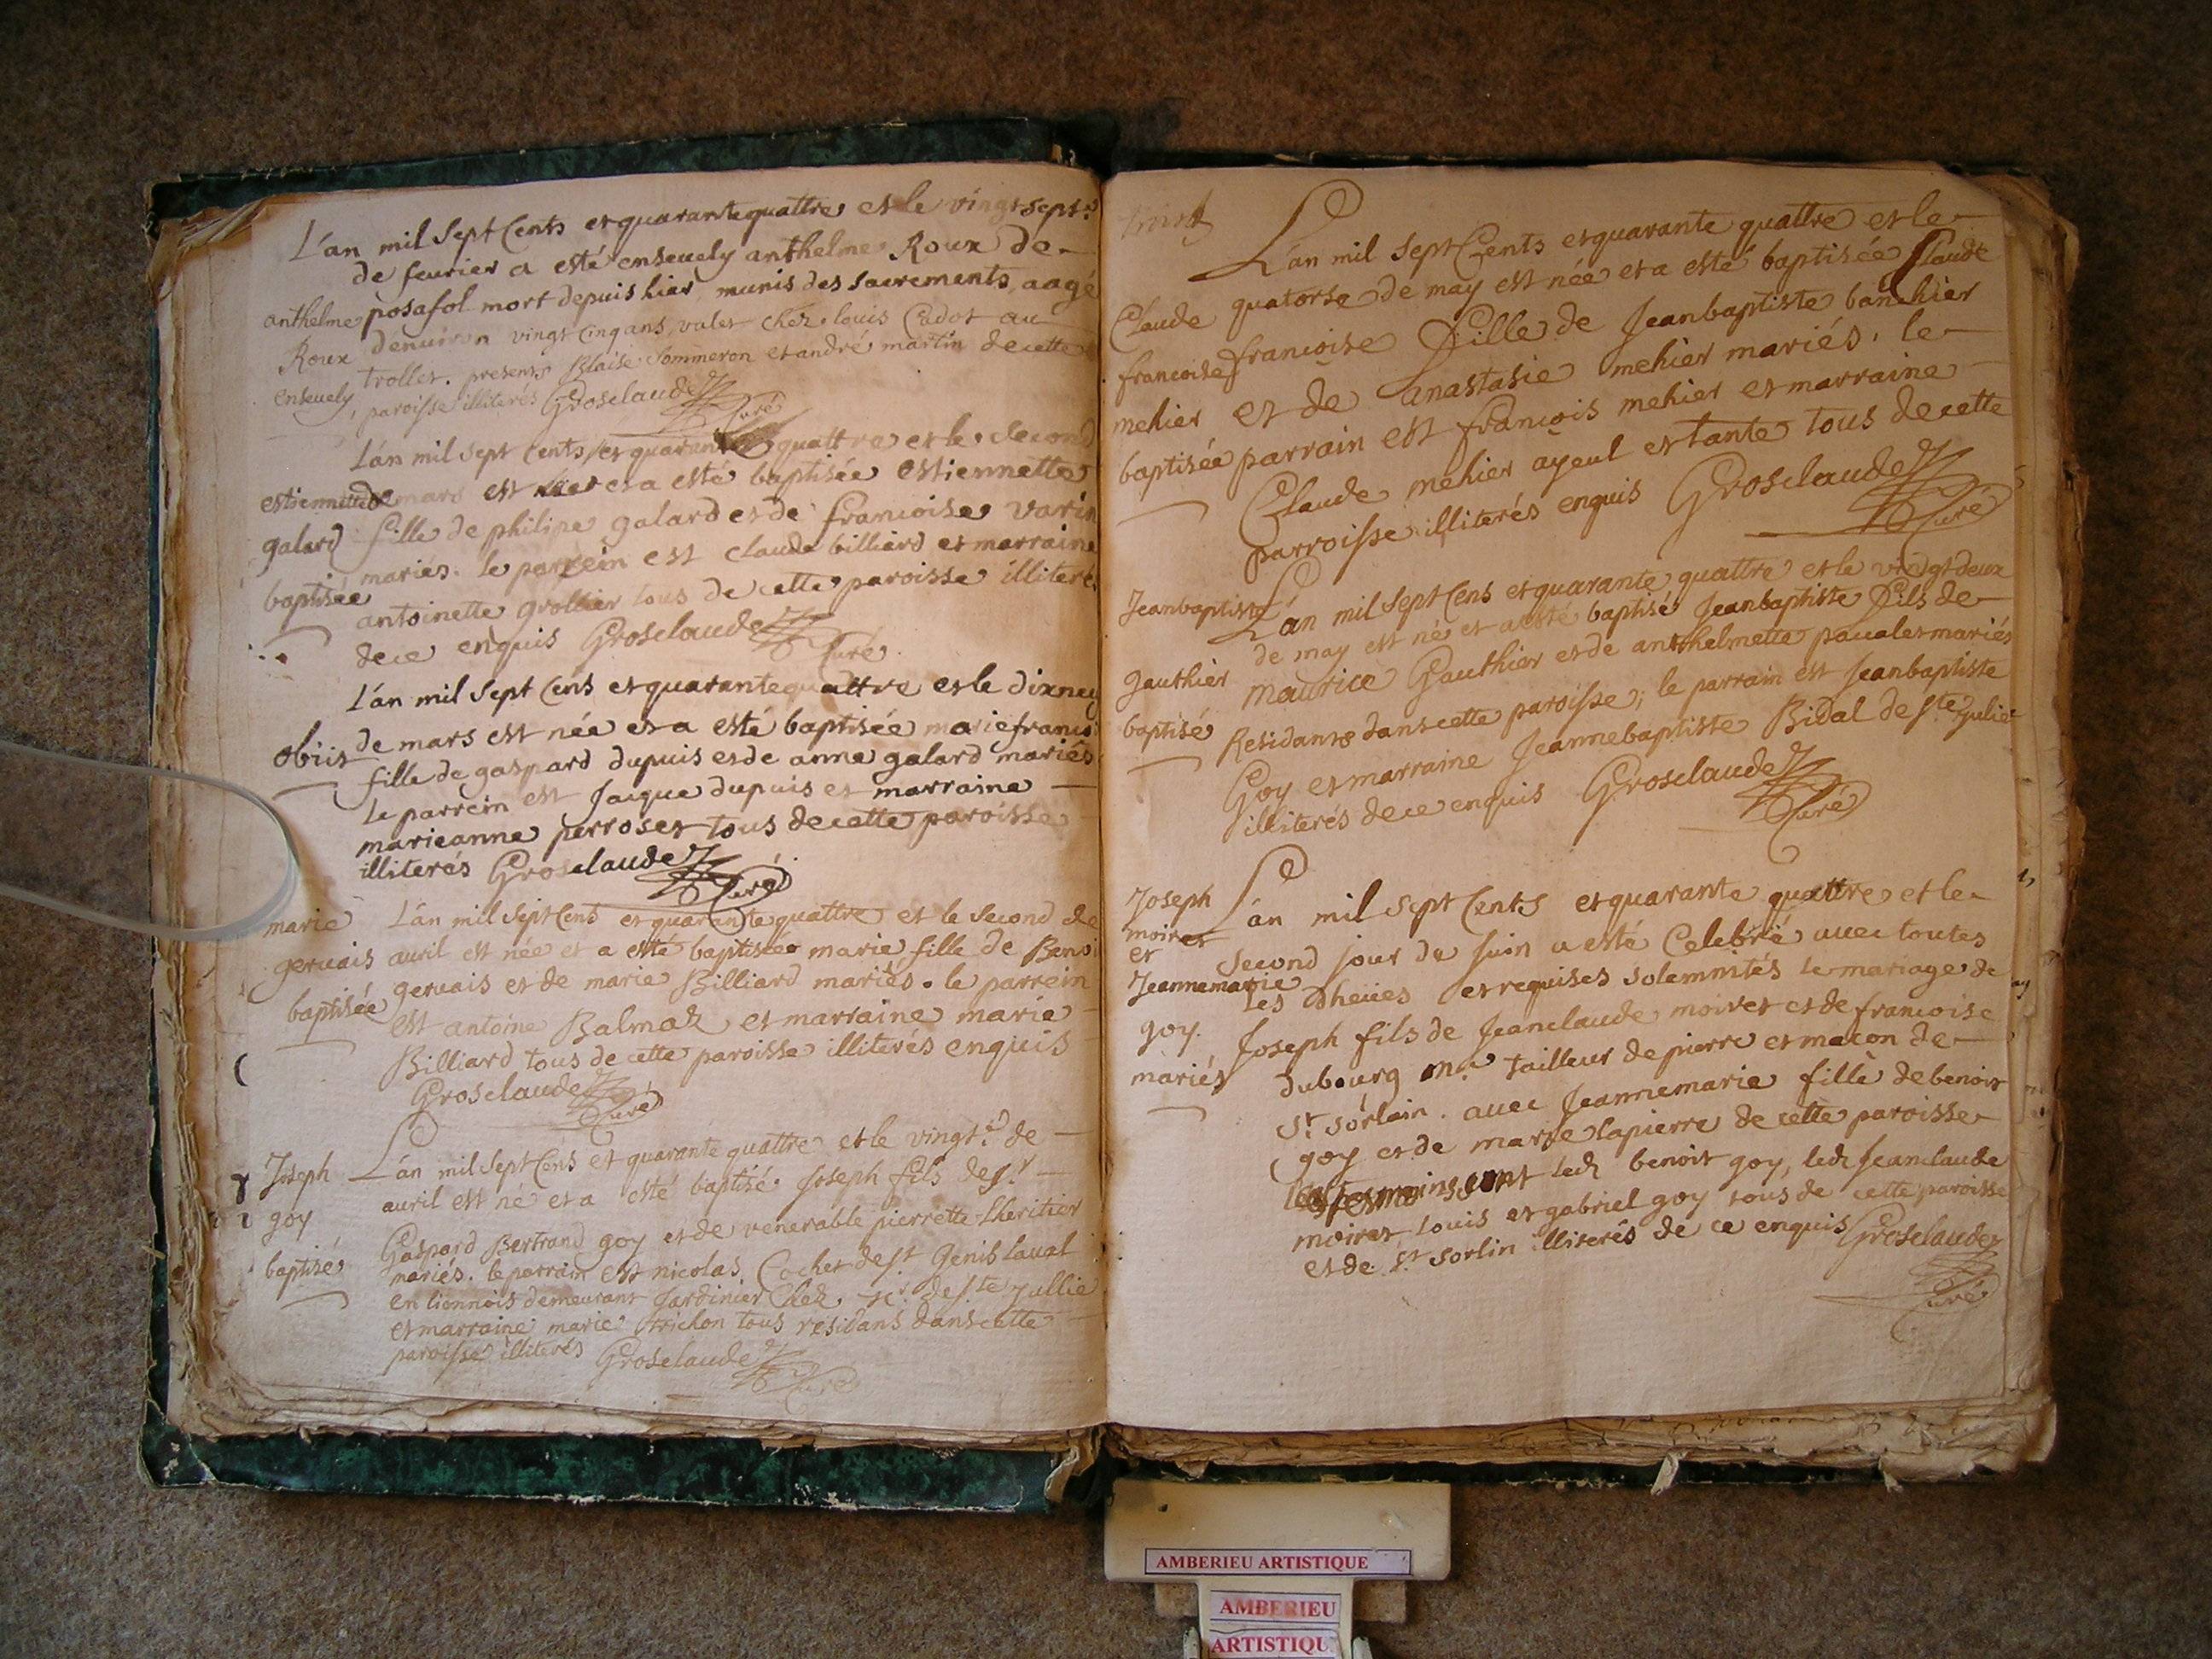 L'an mil sept Cents et quarante quattre et le vingt sept.e
de feurier a esté enseuely anthelme Roux de
anthelme posafol mort depuis hier, munis des sacrements, aagé
Roux denuiron vingt cinq ans, valet chéz louis Cadot au
trollet. presents Blaise Sommeron et andré martin de cette
enseuely paroisse illiterés Grosclaude
Curé
L'an mil sept cents et quarante quattre et le second
estiennette de mars est née et a esté baptisée estiennette
galard fille de philipe galard et de francoise varin
baptisée mariés. le parrein est claude billiard et marraine
antoinette grollier tous de cette paroisse illiterés
de ce enquis Grosclaude
Curé
L'an mil sept Cens et quarante quattre et le dixneu
de mars est née et a esté baptisée marie francoi
obiit fille de gaspard dupuis et de anne galard mariés
le parrein est Jacque dupuis et marraine
marieanne perroset tous de cette paroisse
illiterés Grosclaude
Curé
marie L'an mil sept Cens et quarante quattre et le second de
geruais auril est née et a esté baptisée marie, fille de Benoi
baptisée geruais et de marie Billiard mariés. le parrein
est antoine Balmaz et marraine marie
Billiard tous de cette paroisse illiterés enquis
Grosclaude
Curé
Joseph L'an mil sept Cens et quarante quattre et le vingt.e de
goy auril est né et a esté baptisé Joseph fils de sr
Gaspard Bertrand goy et de venerable pierrette Lheritier
baptisé mariés. le parrain est nicolas Cochet de st Genis Laual
en lionnois demeurant Jardinier Chéz de ste Jullie
et marraine marie trichon tous residans dans cette
paroisse illiterés Grosclaude
Curé
L'an mil sept Cents et quarante quattre et le
Claude quatorse de may est née et a esté baptisée Claude
francoise francoise fille de Jeanbaptiste banchier
mehier et de anastasie mehier mariés. le
baptisée parrain est francois mehier et marraine
Claude mehier ayeul et tante tous de cette
parroisse illiterés enquis Grosclaude
Curé
Jeanbaptiste L'an mil sept Cens et quarante quattre et le vingt deux
de may est né et a esté baptisé Jeanbaptiste fils de
gauthier maurice Gauthier et de anthelmette paualet mariés
baptisé Residants dans cette paroisse; le parrain est Jeanbaptiste
Goy et marraine Jeannebaptiste Bidal de ste Julie
illiterés de ce enquis Grosclaude
Curé
Joseph
moiret L'an mil sept Cents et quarante quattre et le
et second jour de Juin a esté Celebré auec toutes
Jeannemarie les dheües et requises solemnités le mariage de
goy. Joseph fils de Jeanclaude moiret et de francoise
mariés dubourg me tailleur de pierre et macon de
St sorlain. auec Jeannemarie fille de benoit
goy et de marie lapierre de cette paroisse
les tesmoins sont led benoit goy, led Jeanclaude
moiret Louis et gabriel goy tous de cette paroisse
et de St sorlin illiterés de ce enquis Grosclaude
Curé
AMBERIEU ARTISTIQUE
AMBERIEU
ARTISTIQU